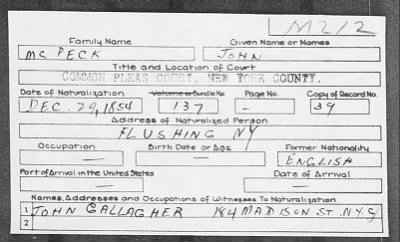 M212
Family Name Given Name or Names
MC PECK JOHN
Title and Location of Court
COMMON PLEAS COURT, NEW YORK COUNTY.
Date of Naturalization Volume or Bundle No. Page No. Copy of Record No.
DEC. 29, 1854 137 - 39
Address of Naturalized Person
FLUSHING NY
Occupation Birth Date or Age Former Nationality
— — ENGLISH
Port of Arrival in the United States Date of Arrival
— —
Names, Addresses and Occupations of Witnesses To Naturalization
1 JOHN GALLAGHER 184 MADISON ST. N.Y.C
2